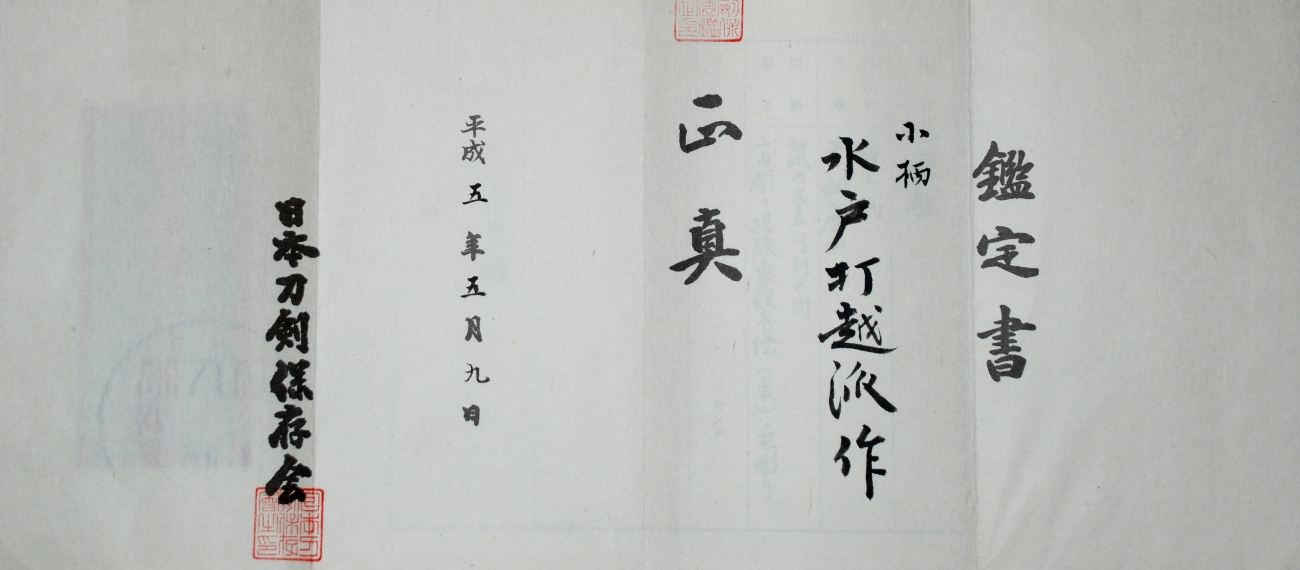 鑑定書
小柄
水戸打越派作
正真
平成五年五月九日
日本刀剣保存会